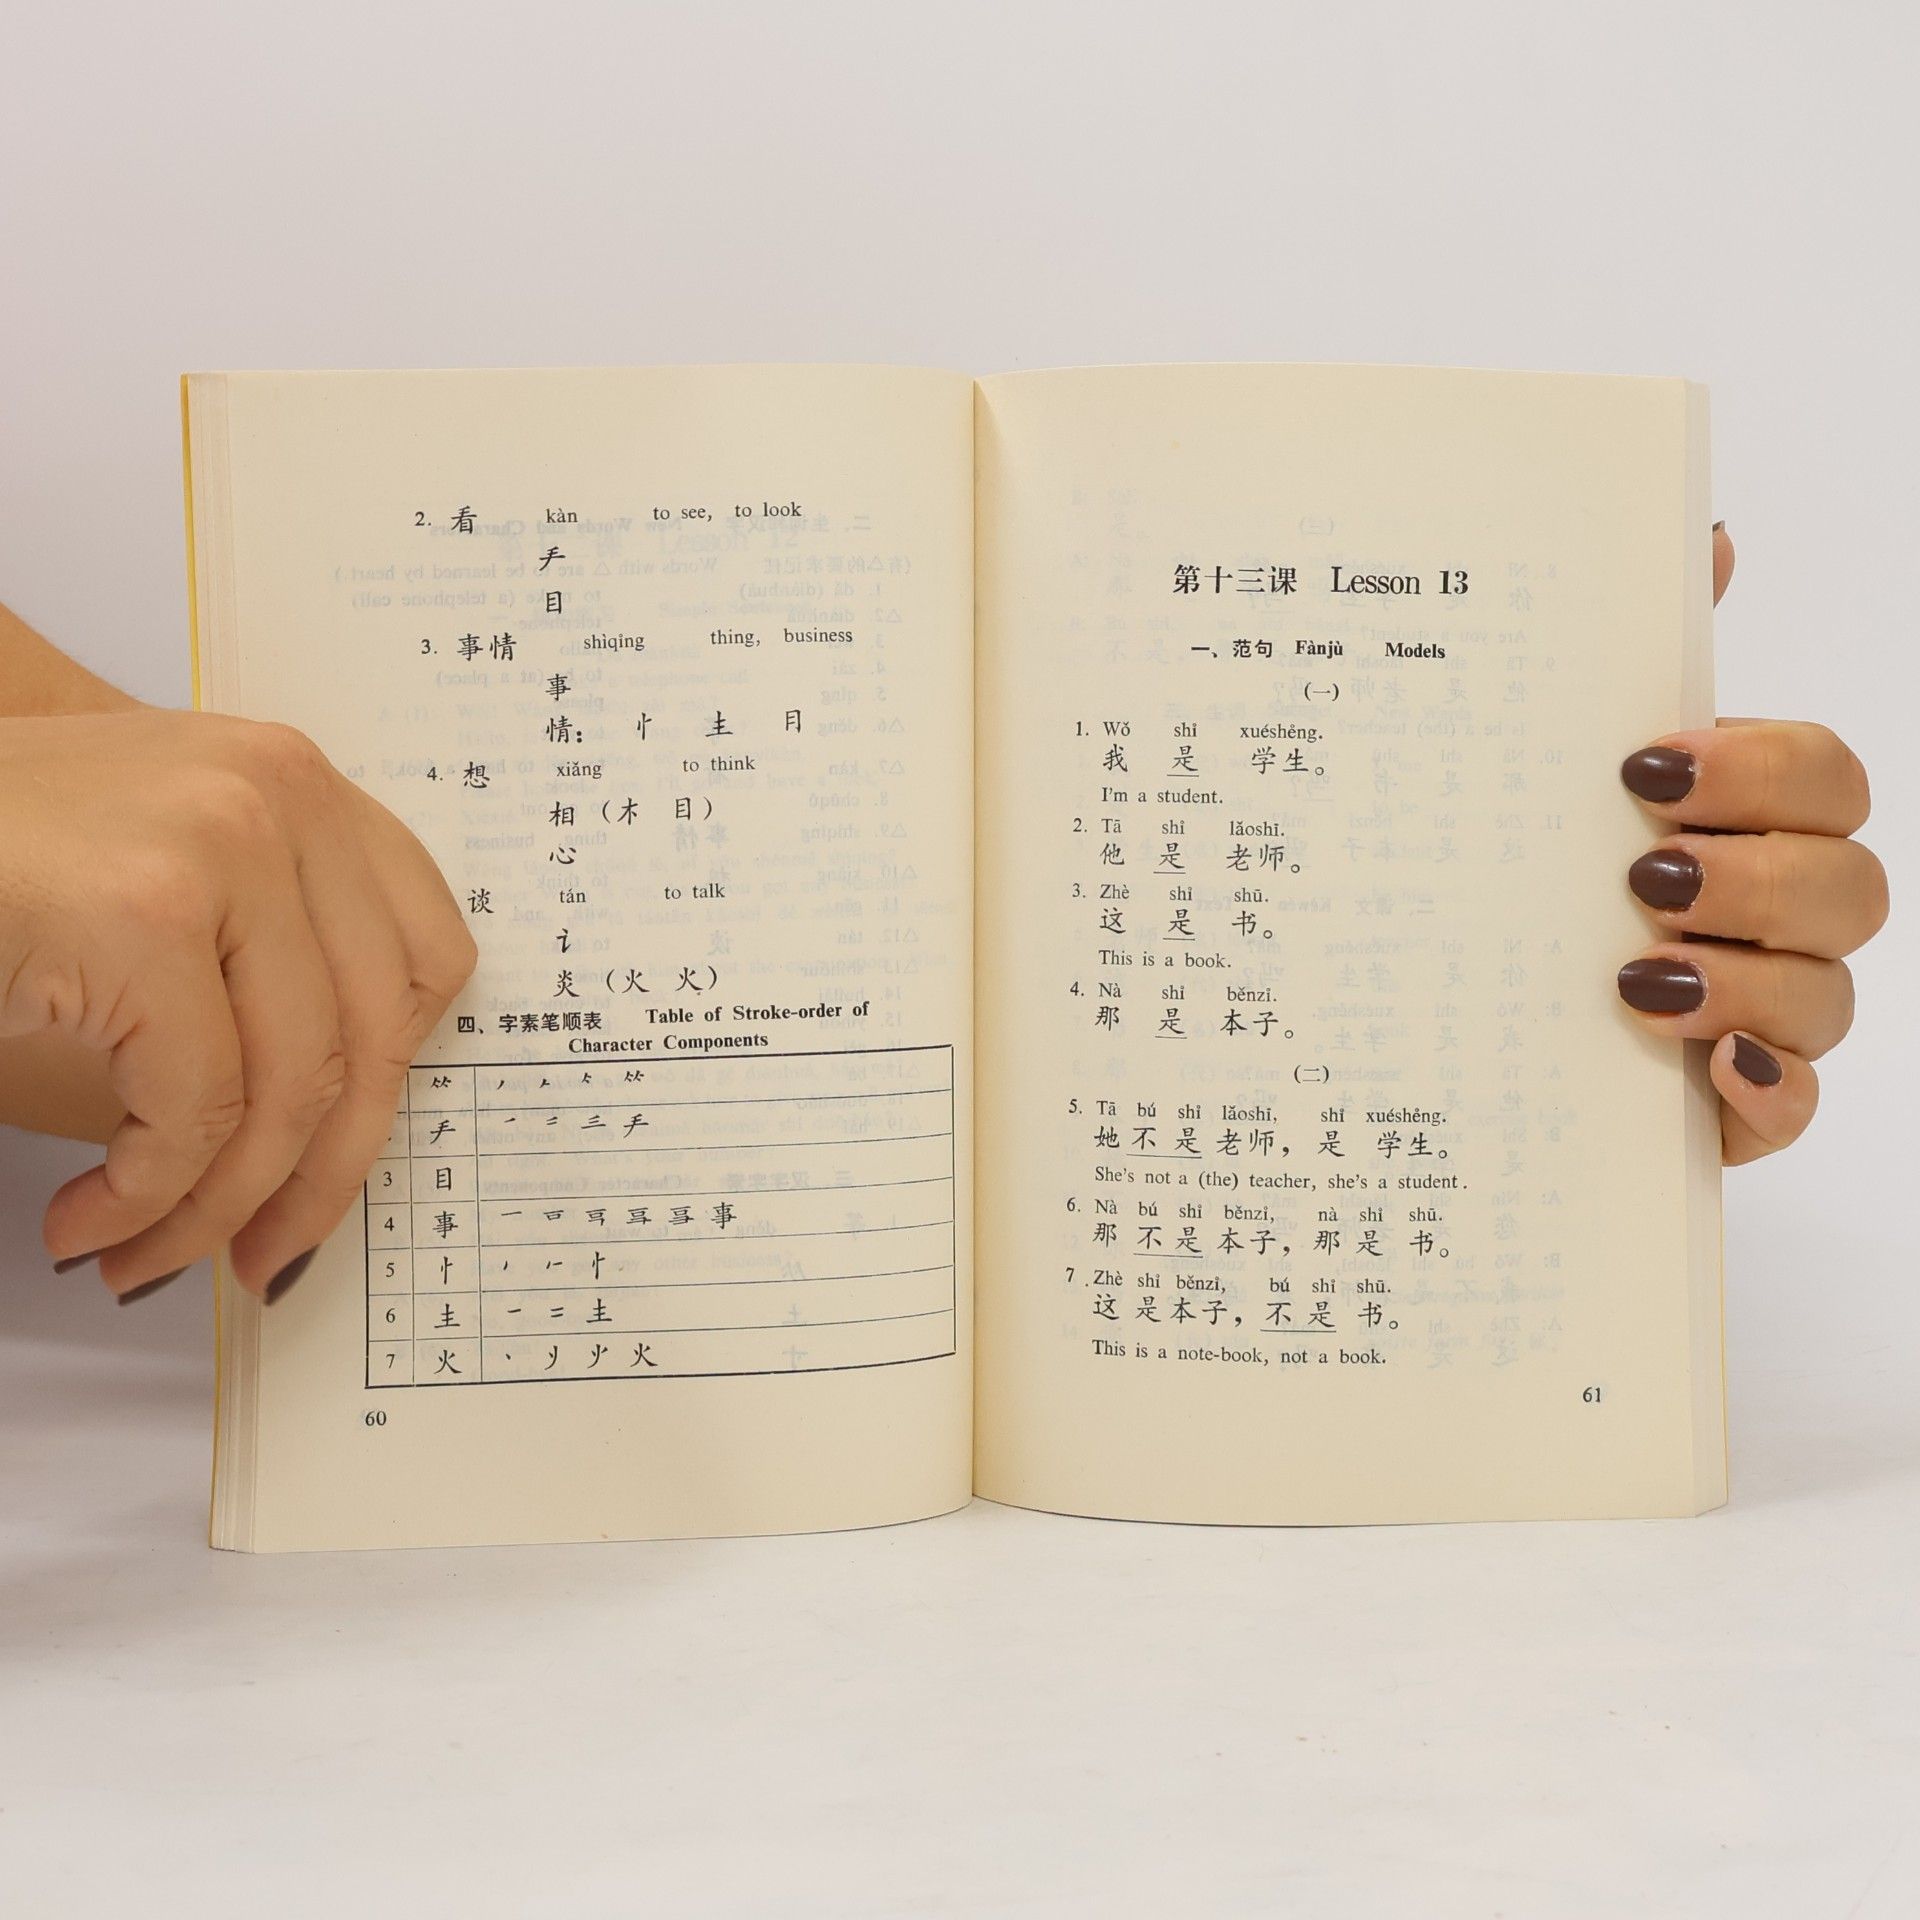 2. 看 kàn to see, to look
龵
目
3. 事情 shìqing thing, business
事
情： 忄 龶 月
4. 想 xiǎng to think
相 （木 目）
心
谈 tán to talk
讠
炎 （火 火）
四、字素笔顺表 Table of Stroke-order of
Character Components
3 目
4 事
5 忄
6 龶
7 火
60
第十三课 Lesson 13
一、范句 Fànjù Models
（一）
1. Wǒ shì xuésheng.
我 是 学生。
I'm a student.
2. Tā shì lǎoshī.
他 是 老师。
3. Zhè shì shū.
这 是 书。
This is a book.
4. Nà shì běnzi.
那 是 本子。
（二）
5. Tā bú shì lǎoshī, shì xuésheng.
她 不 是 老师， 是 学生。
She's not a (the) teacher, she's a student.
6. Nà bú shì běnzi, nà shì shū.
那 不 是 本子， 那 是 书。
7. Zhè shì běnzi, bú shì shū.
这 是 本子， 不 是 书。
This is a note-book, not a book.
61